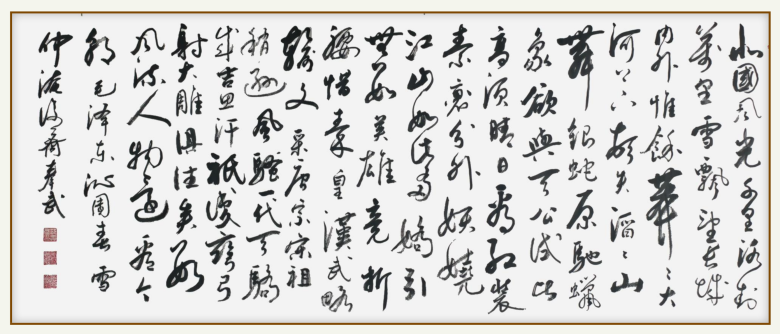 北國風光千里冰封
萬里雪飄望長城
内外惟餘莽莽大
河上下頓失滔滔山
舞銀蛇原馳蠟
象欲與天公試比
高須晴日看紅裝
素裹分外妖嬈
江山如此多嬌引
無數英雄競折
腰惜秦皇漢武略
輸文采唐宗宋祖
稍遜風騷一代天驕
成吉思汗祇識彎弓
射大雕俱往矣數
風流人物還看今
朝毛澤東沁園春雪